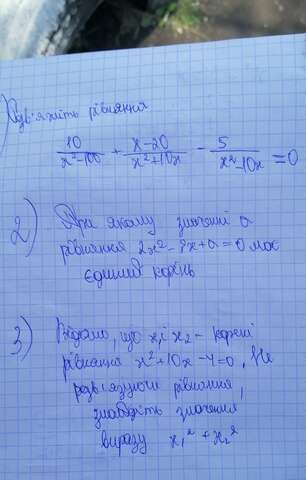 ) Розв'яжіть рівняння
10/(x²-100) + (x-20)/(x²+10x) - 5/(x²-10x) = 0
2) При якому значенні a
рівняння 2x²-8x+a=0 має
єдиний корінь
3) Відомо, що x₁ і x₂ - корені
рівняння x²+10x-4=0, Не
розв'язуючи рівняння,
знайдіть значення
виразу x₁² + x₂²